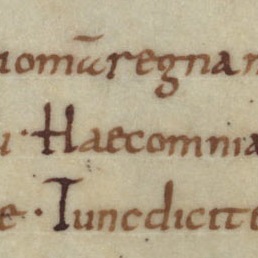 iomūregnan
u · Haecomnia
e · Iuncdicitte